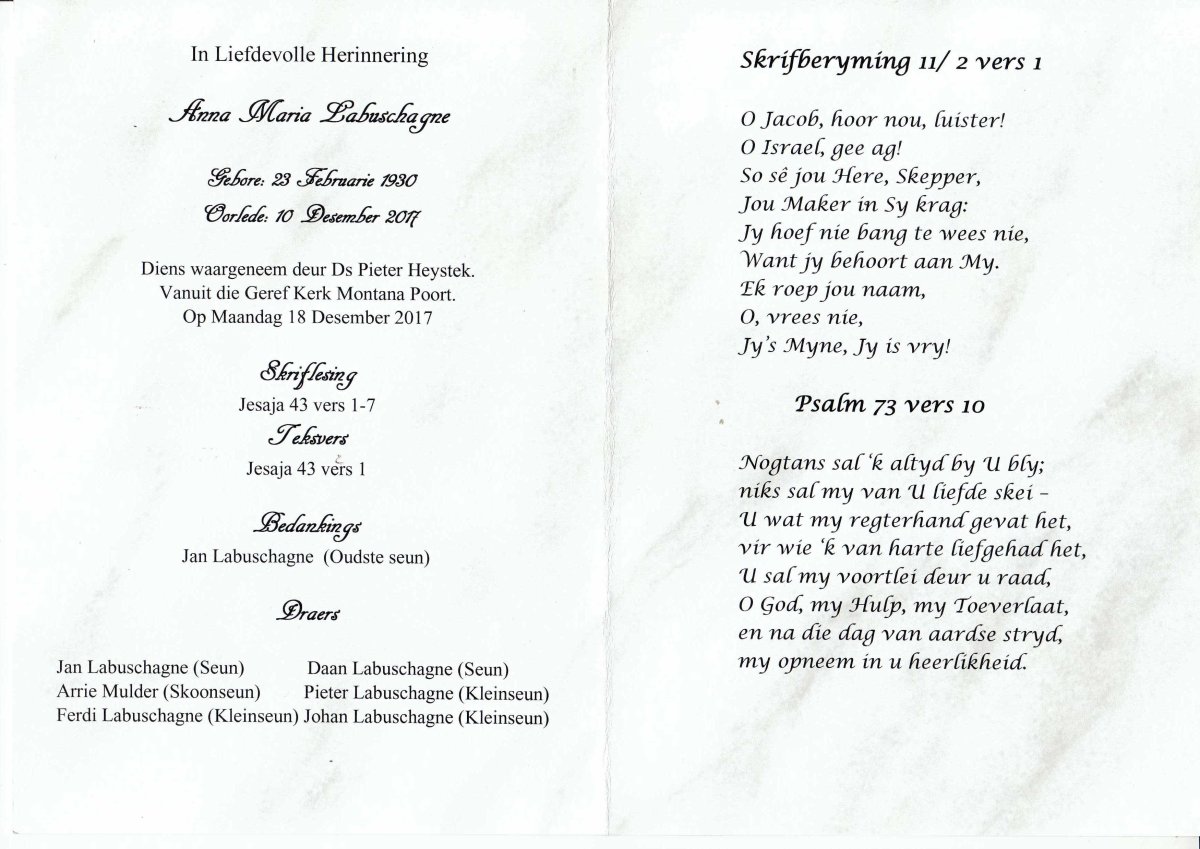 In Liefdevolle Herinnering
Anna Maria Labuschagne
Gebore: 23 Februarie 1930
Oorlede: 10 Desember 2017
Diens waargeneem deur Ds Pieter Heystek.
Vanuit die Geref Kerk Montana Poort.
Op Maandag 18 Desember 2017
Skriflesing
Jesaja 43 vers 1-7
Teksvers
Jesaja 43 vers 1
Bedankings
Jan Labuschagne (Oudste seun)
Draers
Jan Labuschagne (Seun) Daan Labuschagne (Seun)
Arrie Mulder (Skoonseun) Pieter Labuschagne (Kleinseun)
Ferdi Labuschagne (Kleinseun) Johan Labuschagne (Kleinseun)
Skrifberyming 11/ 2 vers 1
O Jacob, hoor nou, luister!
O Israel, gee ag!
So sê jou Here, Skepper,
Jou Maker in Sy krag:
Jy hoef nie bang te wees nie,
Want jy behoort aan My.
Ek roep jou naam,
O, vrees nie,
Jy's Myne, Jy is vry!
Psalm 73 vers 10
Nogtans sal 'k altyd by U bly;
niks sal my van U liefde skei –
U wat my regterhand gevat het,
vir wie 'k van harte liefgehad het,
U sal my voortlei deur u raad,
O God, my Hulp, my Toeverlaat,
en na die dag van aardse stryd,
my opneem in u heerlikheid.